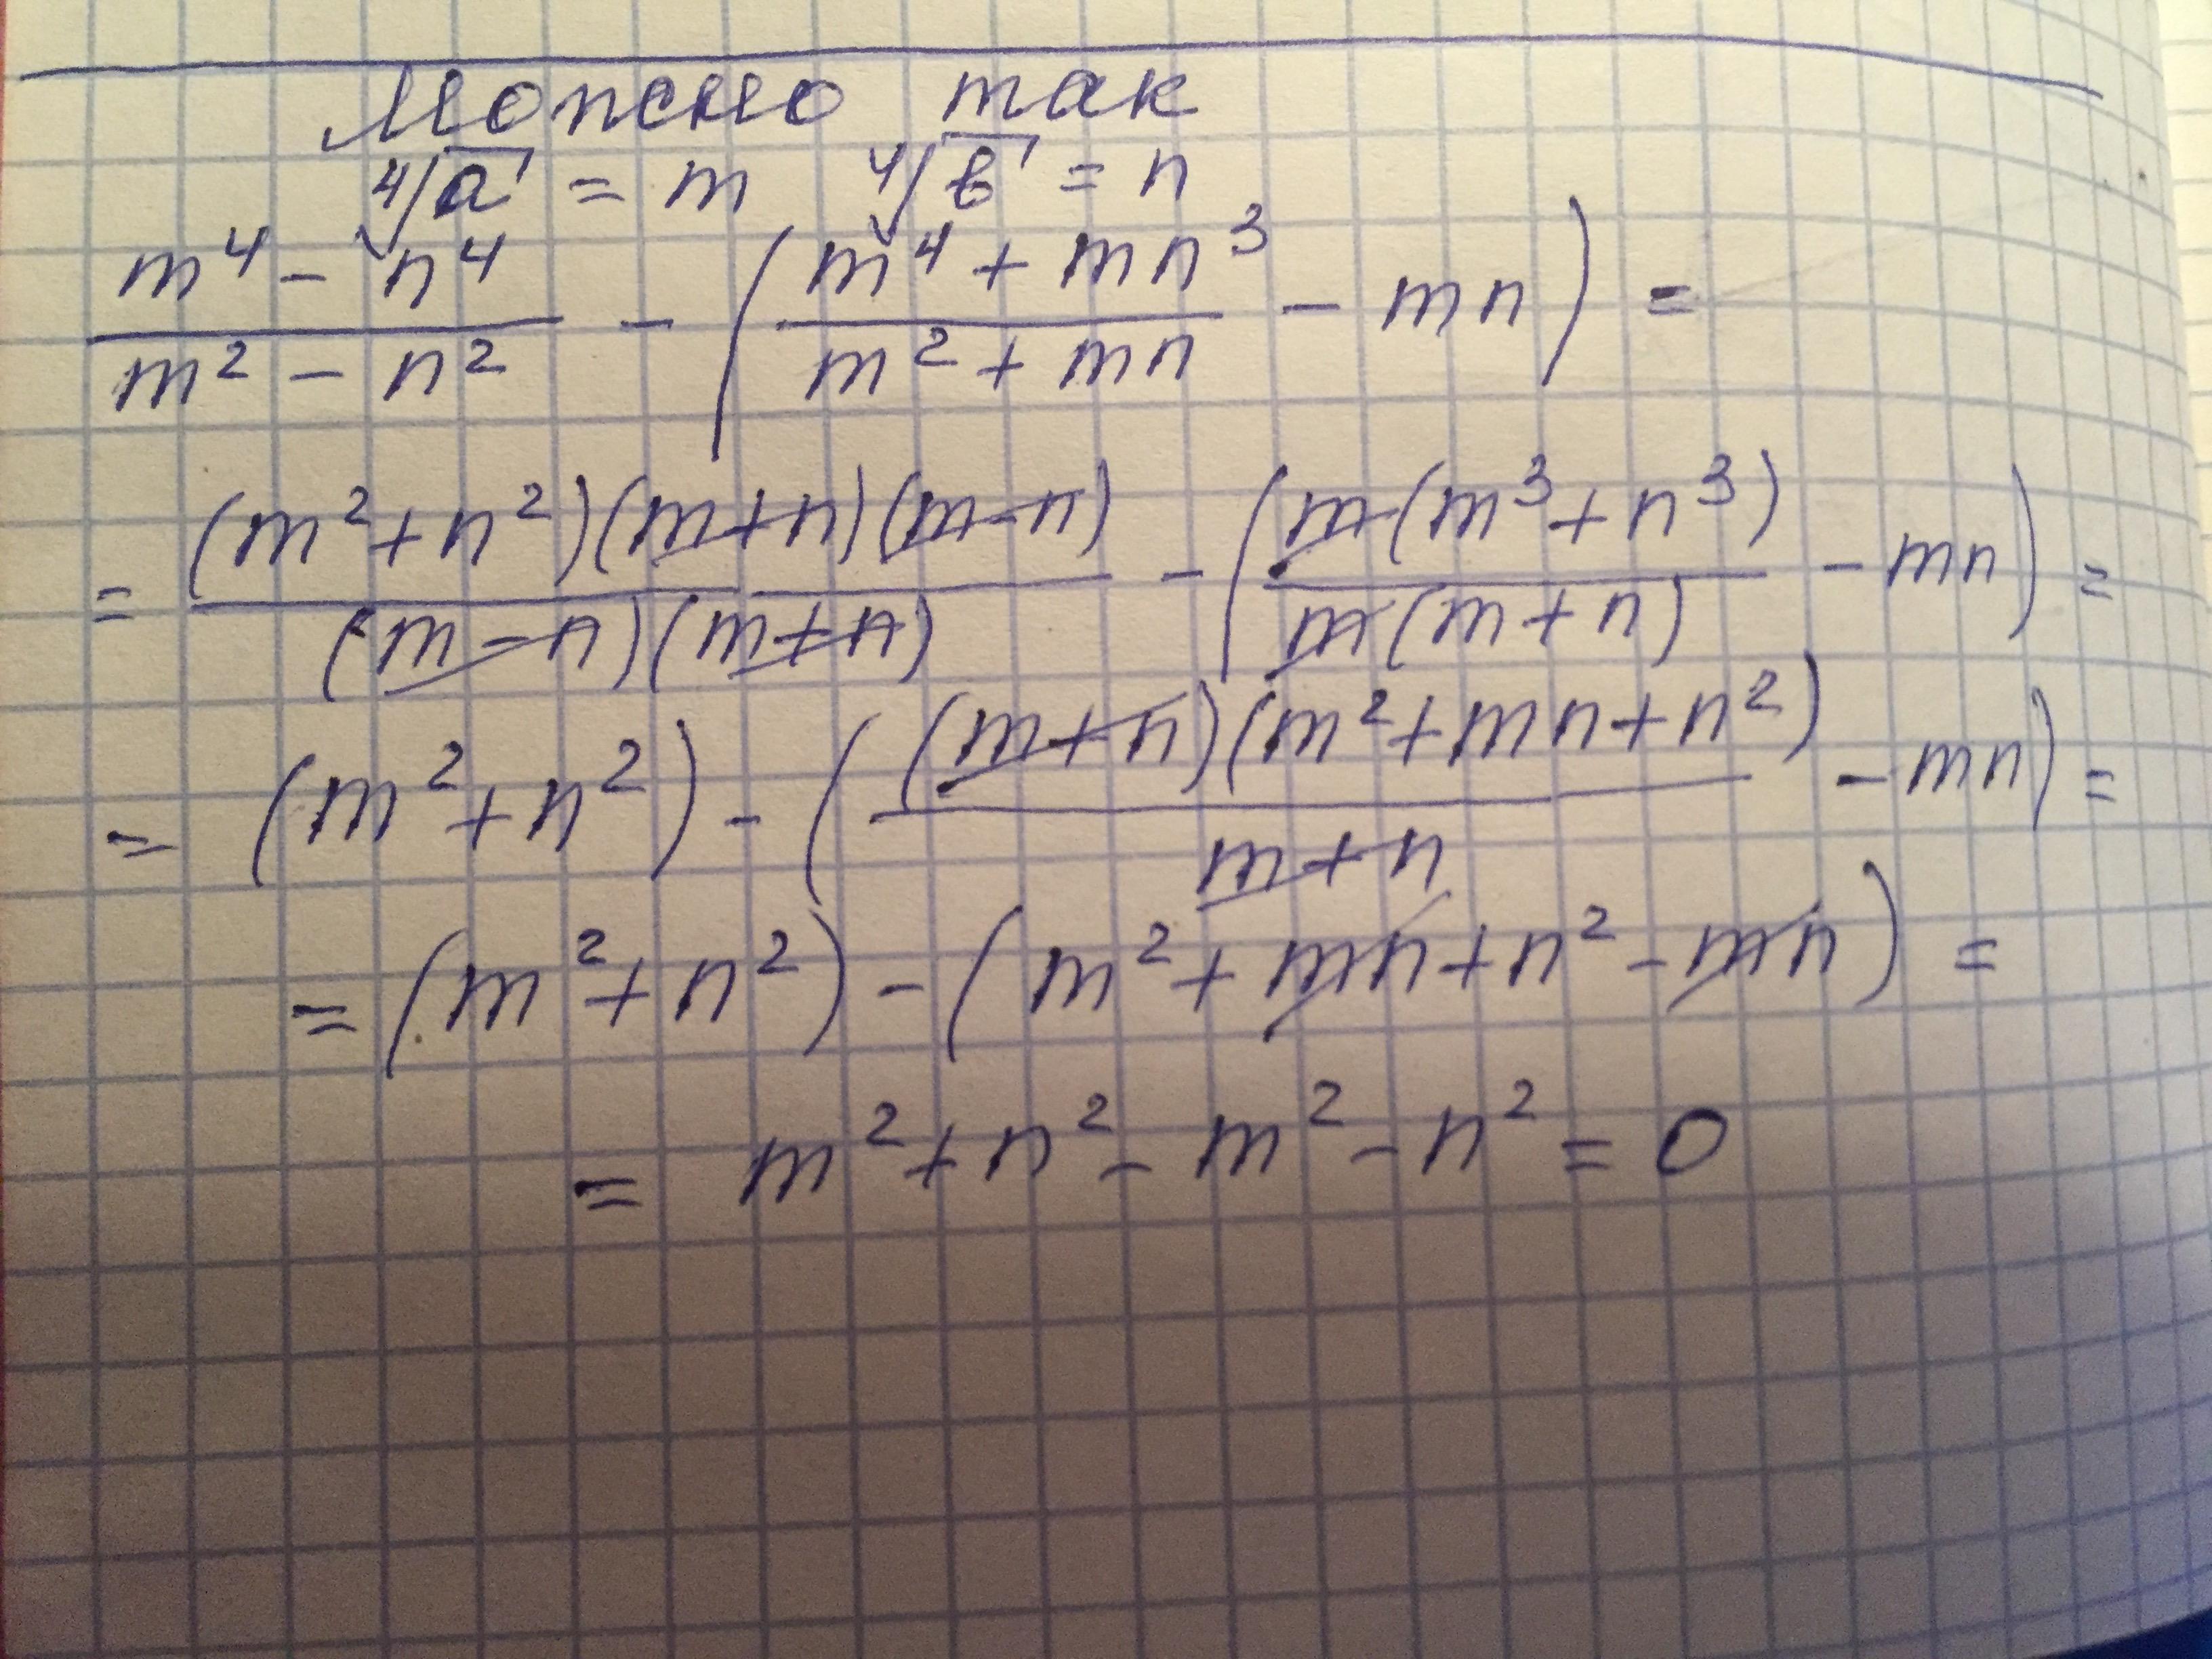 Можно так
⁴√a = m ⁴√b = n
(m⁴ - n⁴)/(m² - n²) - ((m⁴ + mn³)/(m² + mn) - mn) =
= ((m² + n²)(m+n)(m-n))/((m-n)(m+n)) - ((m(m³+n³))/(m(m+n)) - mn) =
= (m² + n²) - (((m+n)(m²+mn+n²))/(m+n) - mn) =
= (m² + n²) - (m² + mn + n² - mn) =
= m² + n² - m² - n² = 0